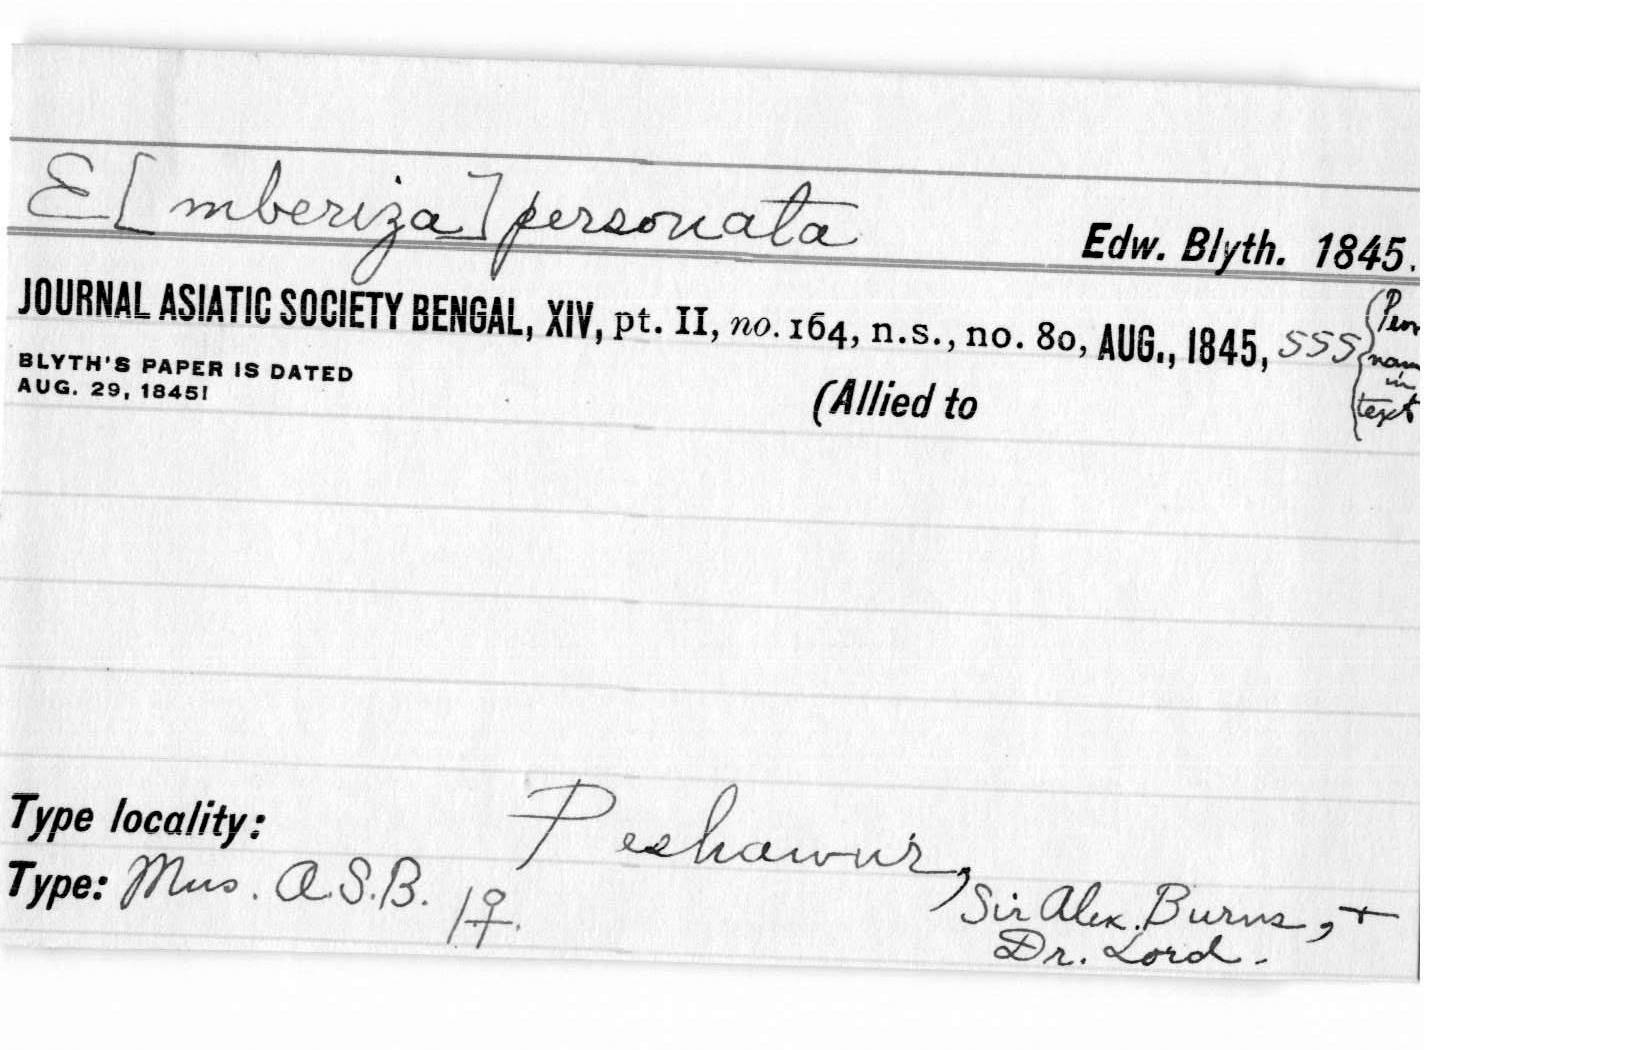 E[mberiza] personata
Edw. Blyth. 1845.
JOURNAL ASIATIC SOCIETY BENGAL, XIV, pt. II, no. 164, n.s., no. 80, AUG., 1845, 555
BLYTH'S PAPER IS DATED
AUG. 29, 1845!
in
text
(Allied to
Type locality: Peshawur,
Type: Mus. A.S.B. 1♀.
Sir Alex. Burns, +
Dr. Lord.